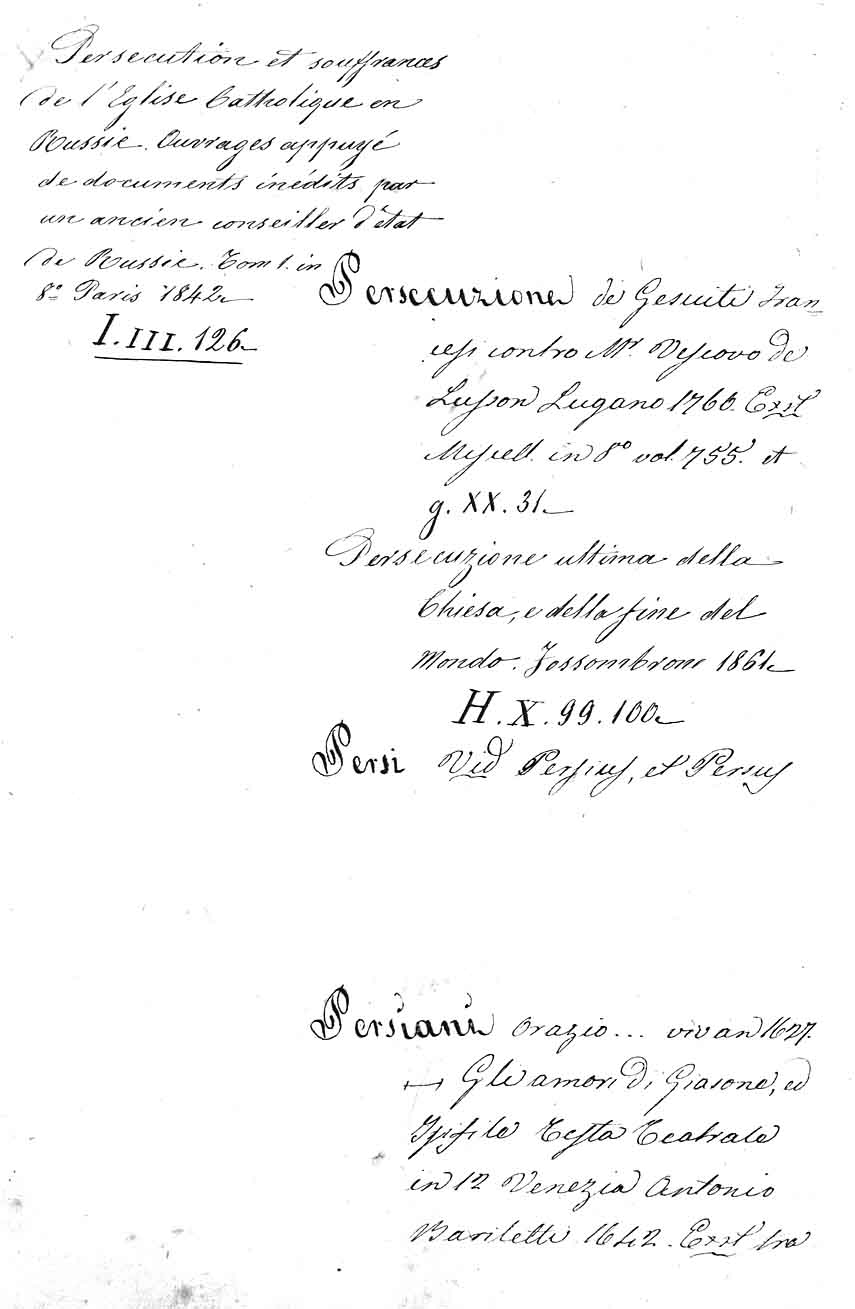 Persecution et souffrances
de l'Eglise Catholique en
Russie. Ouvrages appuyé
de documents inédits par
un ancien conseiller d'état
de Russie. Tom 1. in
8º Paris 1842
I. III. 126
Persecuzione de Gesuiti Fran
cesi contro Mr Vescovo de
Lusson Lugano 1766. Exst
Miscell. in 8º vol. 755. et
g. XX. 31
Persecuzione ultima della
Chiesa, e della fine del
Mondo. Fossombrone 1861
H. X. 99. 100
Persi Vid Persius, et Persus
Persiani Orazio... viv an 1627.
Gli amori di Giasone, ed
Isifile Festa Teatrale
in 12 Venezia Antonio
Bariletti 1642. Exst fra